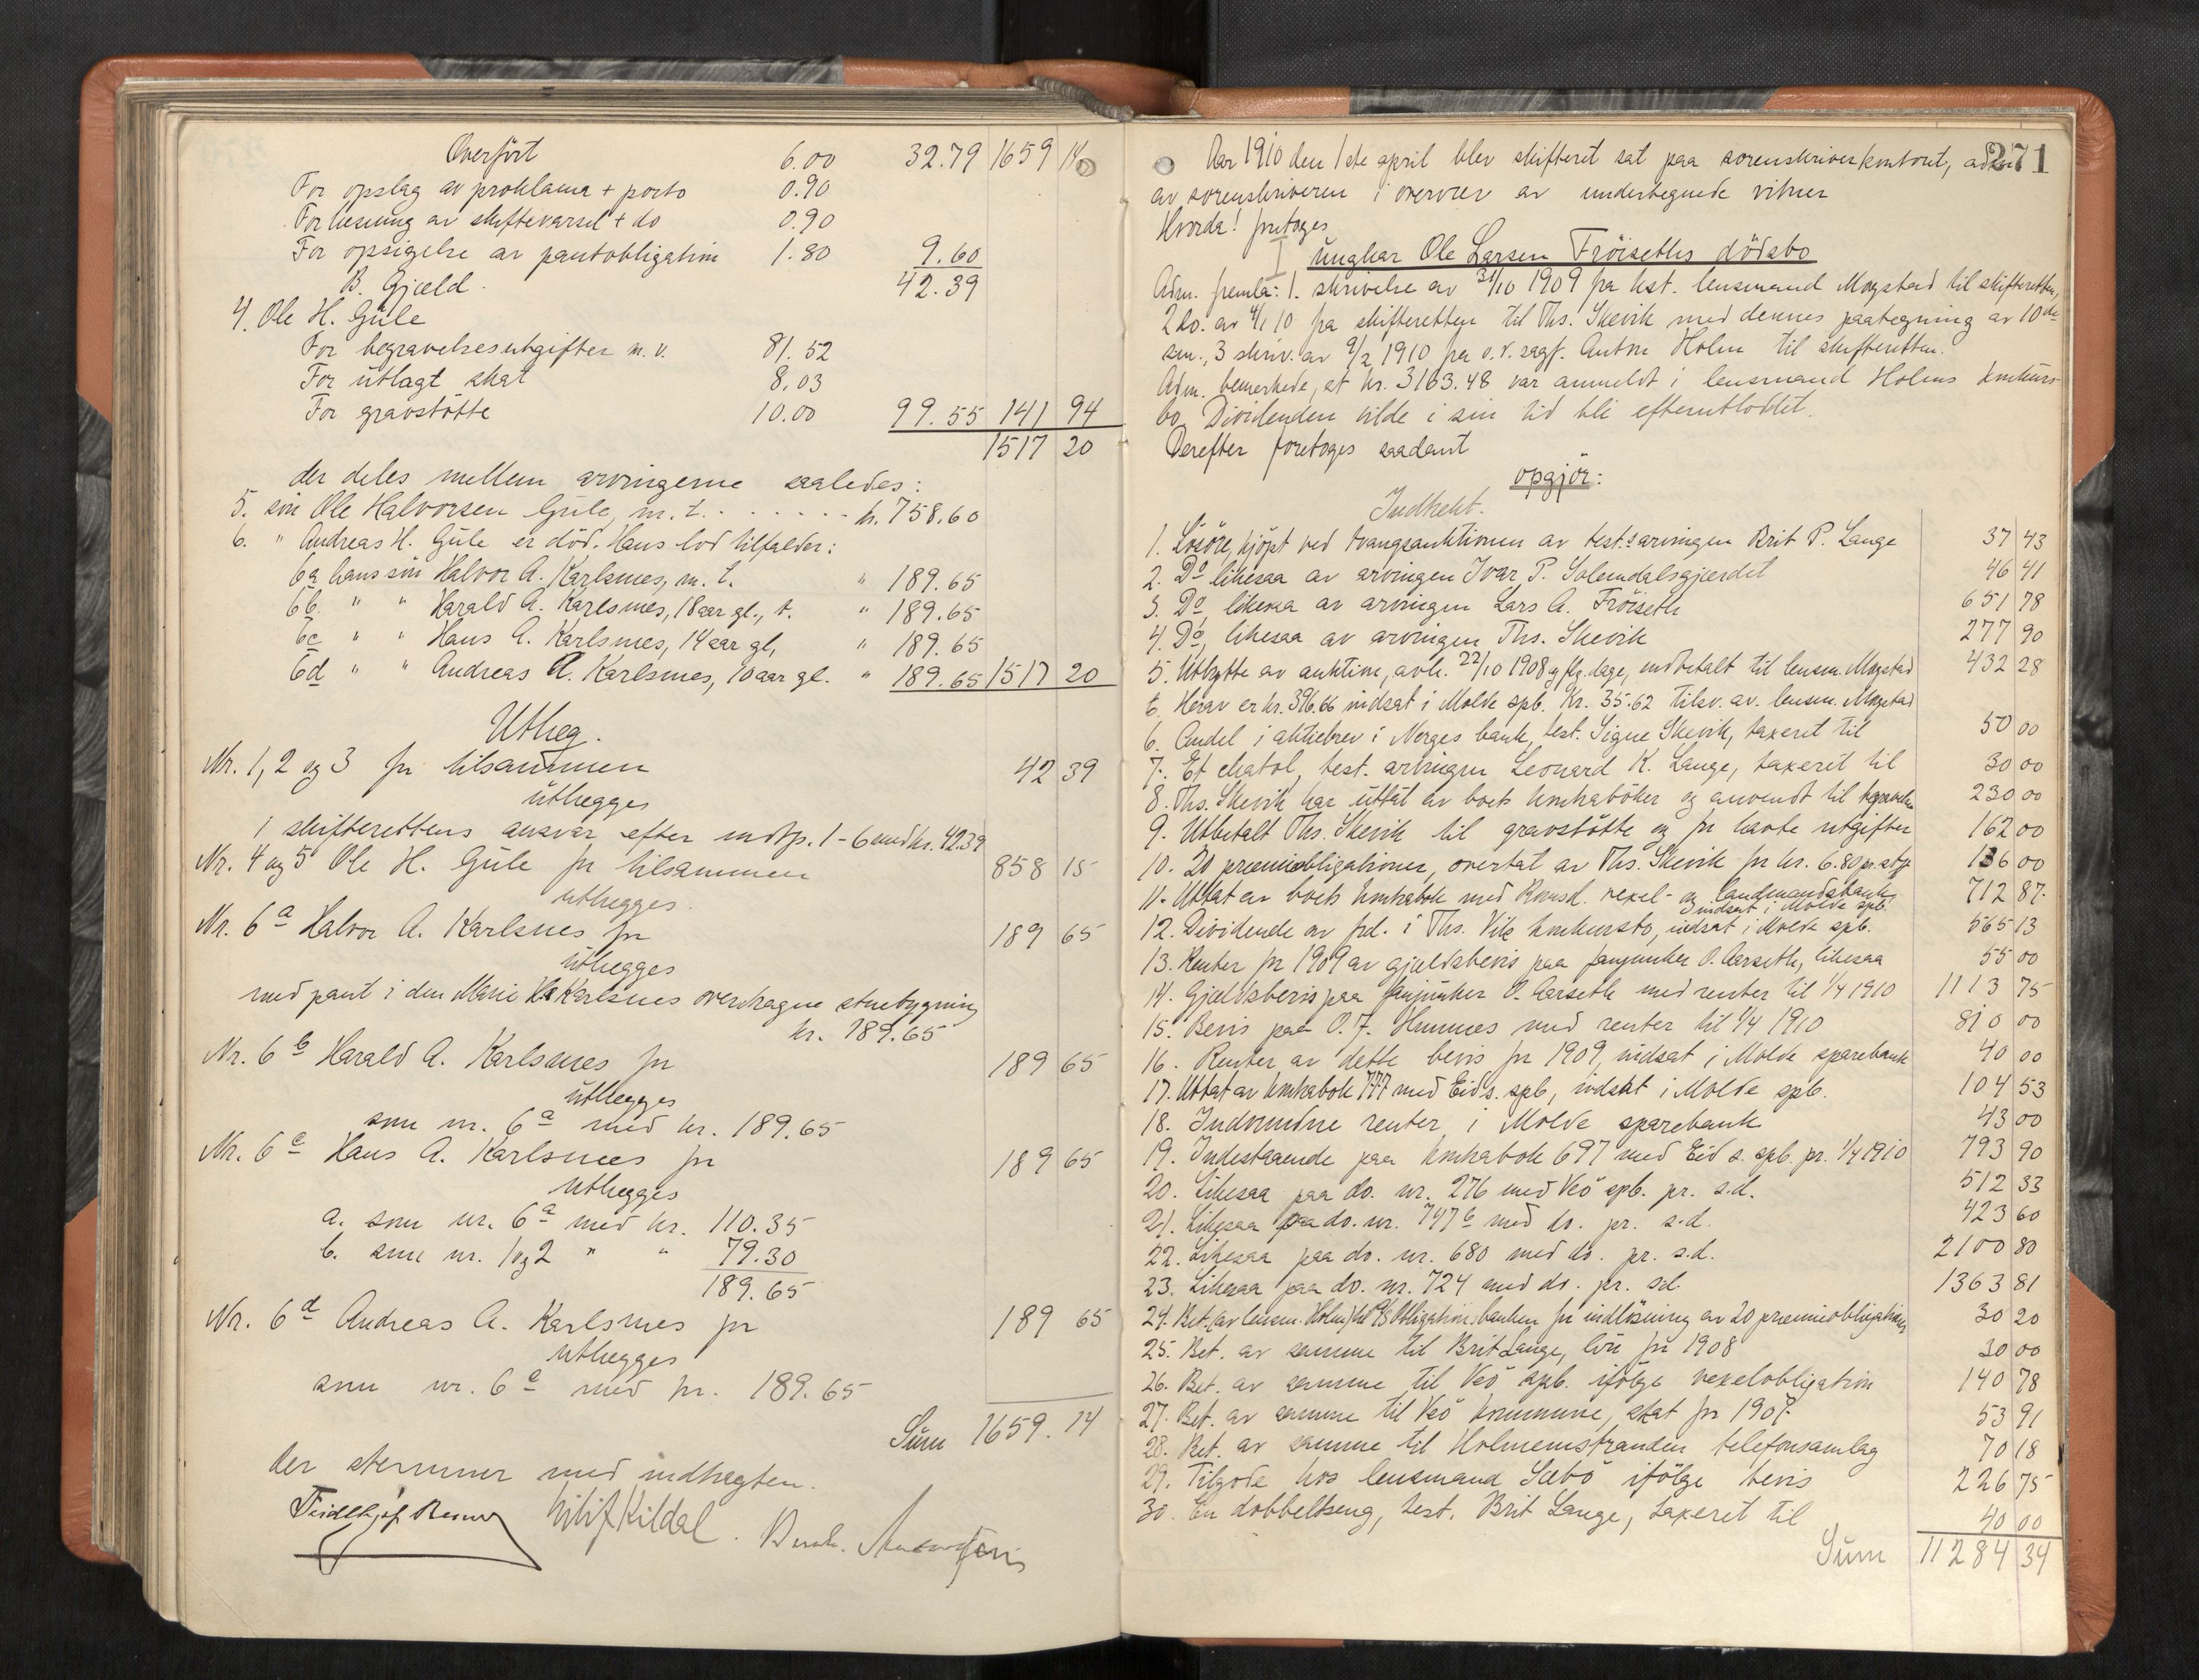 Overført 6.00 32.79 1659 14
For opslag av proklama + porto 0.90
For læsning av skiftevarsel + do 0.90
For opsigelse av pantobligation 1.80 9.60
B. Gjæld. 42.39
4. Ole H. Güle
For begravelsesutgifter m.v. 81.52
For utlagt skat 8.03
For gravstøtte 10.00 99.55 141 94
1517 20
der deles mellem arvingerne saaledes:
5. søn Ole Halvorsen Gule, m. t. . . . . . . . kr. 758.60
6. " Andreas H. Gule er død. Hans lod tilfalder:
6a hans søn Halvor A. Karlsnes, m. t. " 189.65
6b. " " Harald A. Karlsnes, 18 aar gl., t. " 189.65
6c " " Hans A. Karlsnes, 14 aar gl, " 189.65
6d " " Andreas A. Karlsnes, 10 aar gl. " 189.65 1517 20
Utlæg.
Nr. 1, 2 og 3 for tilsammen 42 39
utlægges
i skifterettens ansvar efter indtp. 1-6 med kr. 42.39
Nr. 4 og 5 Ole H. Gule for tilsammen 858 15
utlægges.
Nr. 6a Halvor A. Karlsnes for 189 65
utlægges
med pant i den Marie Karlsnes overdragne stuebygning
kr. 189.65
Nr. 6b Harald A. Karlsnes for 189 65
utlægges
som nr. 6a med kr. 189.65
Nr. 6c Hans A. Karlsnes for 189 65
utlægges
a. som nr. 6a med kr. 110.35
b. som nr. 1 og 2 " " 79.30
189.65
Nr. 6d Andreas A. Karlsnes for 189 65
utlægges
som nr. 6c med kr. 189.65
Sum 1659.14
der stemmer med indtægten.
Kildal.
271
Aar 1910 den 1ste april blev skifteret sat paa sorenskriverkontoret, adm.
av sorenskriveren i overvær av undertegnede vitner
Hvorda! foretoges
I Ungkar Ole Larsen Frøiseths dødsbo
Adm. fremla: 1. skrivelse av 31/10 1909 fra kst. lensmand Mogstad til skifteretten,
2 do. av 4/1 10 fra skifteretten til Ths. Skevik med dennes paategning av 10de
sm., 3 skriv. av 9/2 1910 fra o.r. sagf. Anton Holm til skifteretten.
Adm. bemerkede, at kr. 3163.48 var anmeldt i lensmand Holms konkurs-
bo. Dividenden vilde i sin tid bli efterutloddet.
Derefter foretoges saadant
opgjør:
Indtekt.
1. Løsøre, kjøpt ved tvangsauktionen av test.s arvingen Brit P. Lange 37 43
2. Do likesaa av arvingen Ivar P. Solemdalsgjærdet 46 41
3. Do, likesaa av arvingen Lars A. Frøiseth 651 78
4. Do, likesaa av arvingen Ths. Skevik 277 90
5. Utbytte av auktion, avh. 22/10 1908 og flg. dage, indbetalt til lensm. Mogstad 432 28
Herav er kr. 396.66 indsat i Molde spb. Kr. 35.62 tilsv. av. lensm. Mogstad
6. Andel i aktiebrev i Norges bank, test. Signe Skevik, taxeret til 50 00
7. Et chatol, test. arvingen Leonard K. Lange, taxeret til 30 00
8. Ths. Skevik har uttat av boets kontrabøker og anvendt til begravelse 230 00
9. Utbetalt Ths. Skevik til gravstøtte og for havte utgifter 162 00
10. 20 præmieobligationer, overtat av Ths. Skevik for kr. 6.80 pr. stk 136 00
11. Uttat av boets kontrabok med Romsd. vexel- og landmandsbank indsat i Molde spb. 712 87
12. Dividende av frd. i Ths. Viks konkursbo, indsat i Molde spb. 565 13
13. Renter for 1909 av gjældsbevis paa fanjunker O. Aarseth, likesaa 55 00
14. Gjældsbevis paa fanjunker O. Aarseth med renter til 1/4 1910 1113 75
15. Bevis paa O. J. Humnes med renter til 1/4 1910 810 00
16. Renter av dette bevis for 1909, indsat i Molde sparebank 40 00
17. Uttat av kontrabok 777 med Eids. spb, indsat i Molde spb. 104 53
18. Indvundne renter i Molde sparebank 43 00
19. Indestaaende paa kontrabok 697 med Eid s. spb. pr. 1/4 1910 793 90
20. Likesaa paa do. nr. 276 med Veø spb. pr. s.d. 512 33
21. Likesaa paa do. nr. 747b med do. pr. s.d. 423 60
22. Likesaa paa do. nr. 680 med do. pr. s.d. 2100 80
23. Likesaa paa do. nr. 724 med do. pr. sd. 1363 81
24. Bet. (av lensm. Holm) til A/S Obligationsbanken for indløsning av 20 præmieobligationer 30 20
25. Bet. av samme til Brit Lange, løn for 1908 30 00
26. Bet. av samme til Veø spb. ifølge vexelobligation 140 78
27. Bet. av samme til Veø kommune, skat for 1907. 53 91
28. Bet. av samme til Holmemstranden telefonsamlag 70 18
29. Tilgode hos lensmand Sæbø ifølge bevis 226 75
30. En dobbeltseng, test. Brit Lange, taxeret til 40 00
Sum 11284 34